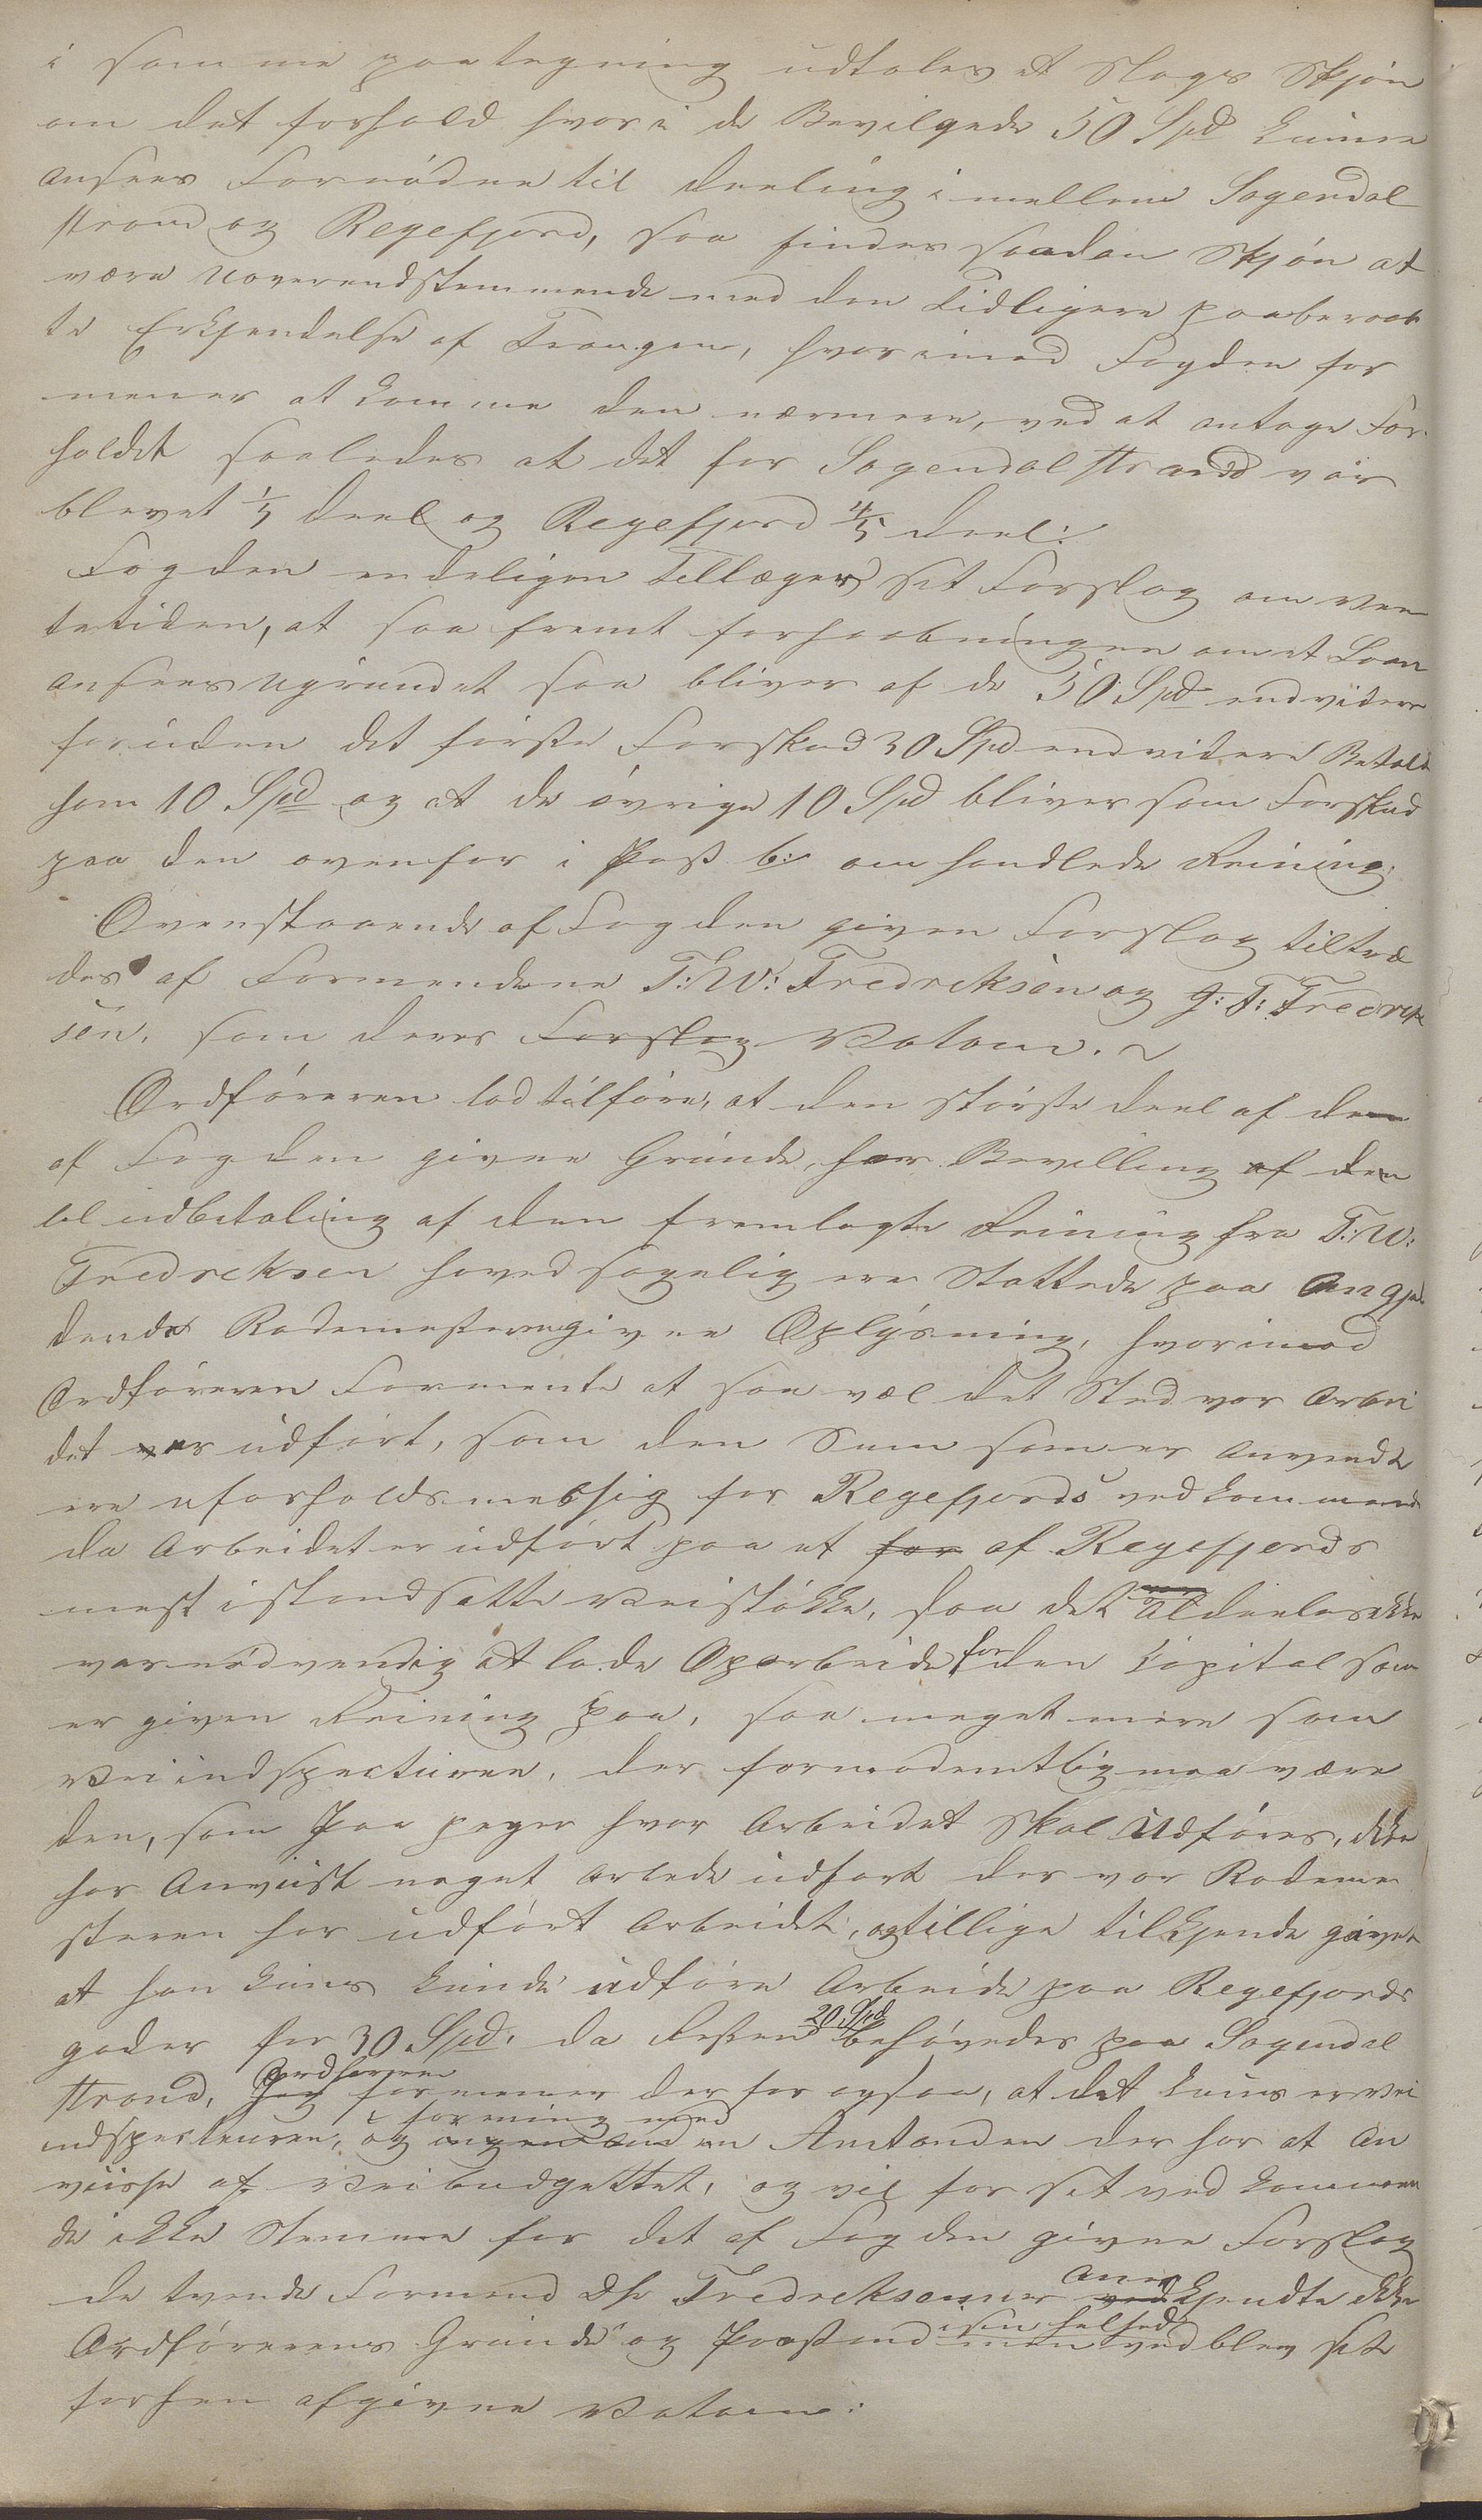 i samme paategning udtales et Slags Skjøn
om det forhold hvor i de Bevilgede 50 Spd kunne
ansees Fornødne til deeling i mellem Sogendal
strand og Regefjord, saa findes saadan Skjøn at
være uoverendstemmende med den Tidligere paaberaab
te Erkjendelse af Trangen, hvorimod Fogden for
mener at komme den nærmere, ved at antage For
holdet saaledes at det for Sogendalstrand var
blevet 1/5 deel og Regefjord 4/5 deel:
Fogden endeligen Tillægger sit Forslag om Ven
tetiden, at saa fremt forhaabningen om et Laan
ansees ugrundet saa bliver af de 50 Spd endvidere
foruden det første Forskud 30 Spd endvidere Betalt
som 10 Spd og at de øvrige 10 Spd bliver som Forskud
paa den ovenfor i Post b: om handlede Reining.
Ovenstaaende af Fogden given Forslag tiltræ
des af Formendene T: W: Fredreksen og J: T: Fredrek
sen, som deres Forslag Votom.
Ordføreren lod tilføre, at den største deel af den
af Fogden givne Grunde, for Bevilling af den
til udbetaling af den fremlagte Reining fra T: W:
Fredreksen hovedsagelig ere Støttede paa Angje
dende Rodemesteren givne Oplysning, hvorimod
Ordføreren Formente at saa væl det Sted vor Arbei
det er udført, som den Sum som er anvendt
ere uforholdsmessig for Regefjords vedkommende
da Arbeidet er udført paa et for af Regefjords
mest istandsatte Veistøkke, saa det aldeeles ikke
var nødvendig at lade Oparbeide for den Kapital som
er given Reining paa, saa meget mere som
Veiindspecteuren, der formodentlig maa være
den, som Paa peger hvor Arbeidet skal Udføres, ikke
har Anviist noget Arbede udført der vor Rodeme
steren har udført Arbeidet, og tillige tilkjende givet
at han kuns kunde udføre Arbeide paa Regefjords
gader for 30 Spd, da Resten 20 Spd behøvedes paa Sogendal
strand, Jeg Ordføreren formener derfor ogsaa, at det kuns er Vei
indspecteuren, og i forening med en Amtanden der har at An
viisse af Veibudgettet, og vil for sit vedkommen
de ikke Stemme for det af Fogden givne Forslag
de tvende Formend Dhr Fredreksenner Anerkjendte ikke
Ordførerens Grunde og Paastand i sin helhed men vedblev sit
forhen afgivne Votom: